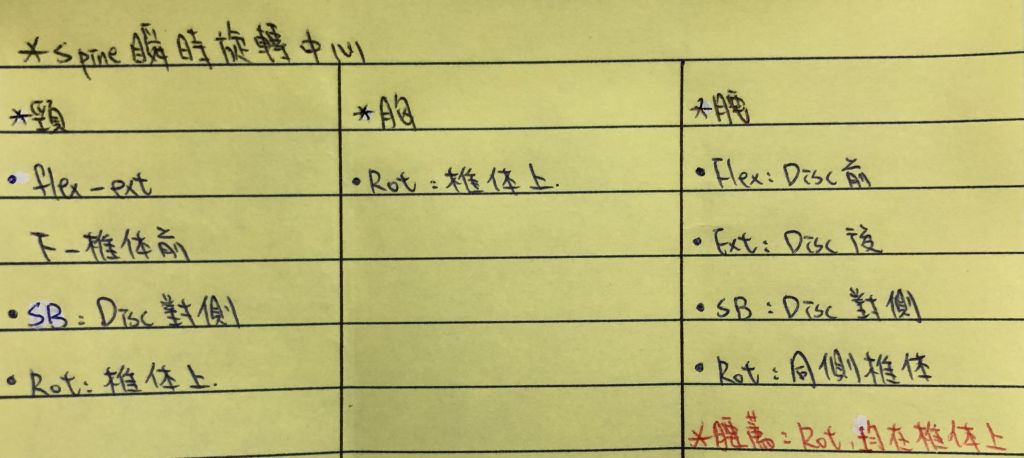 *Spine 瞬時旋轉中心
*頸
• flex-ext
下一椎体前
• SB: Disc 對側
• Rot: 椎体上.
*胸
• Rot: 椎体上.
*腰
• Flex: Disc 前
• Ext: Disc 後
• SB: Disc 對側
• Rot: 同側椎体
*腰薦: Rot, 均在椎体上